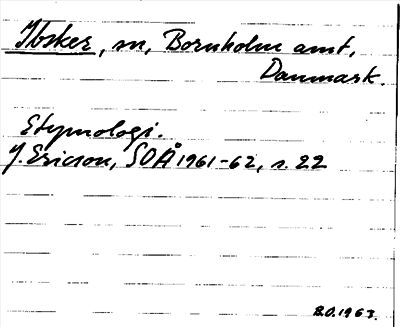 Ibsker, sn, Bornholm amt,
Danmark.
Etymologi.
J. Ericson, SOÅ 1961-62, s. 22
B.O. 1963.